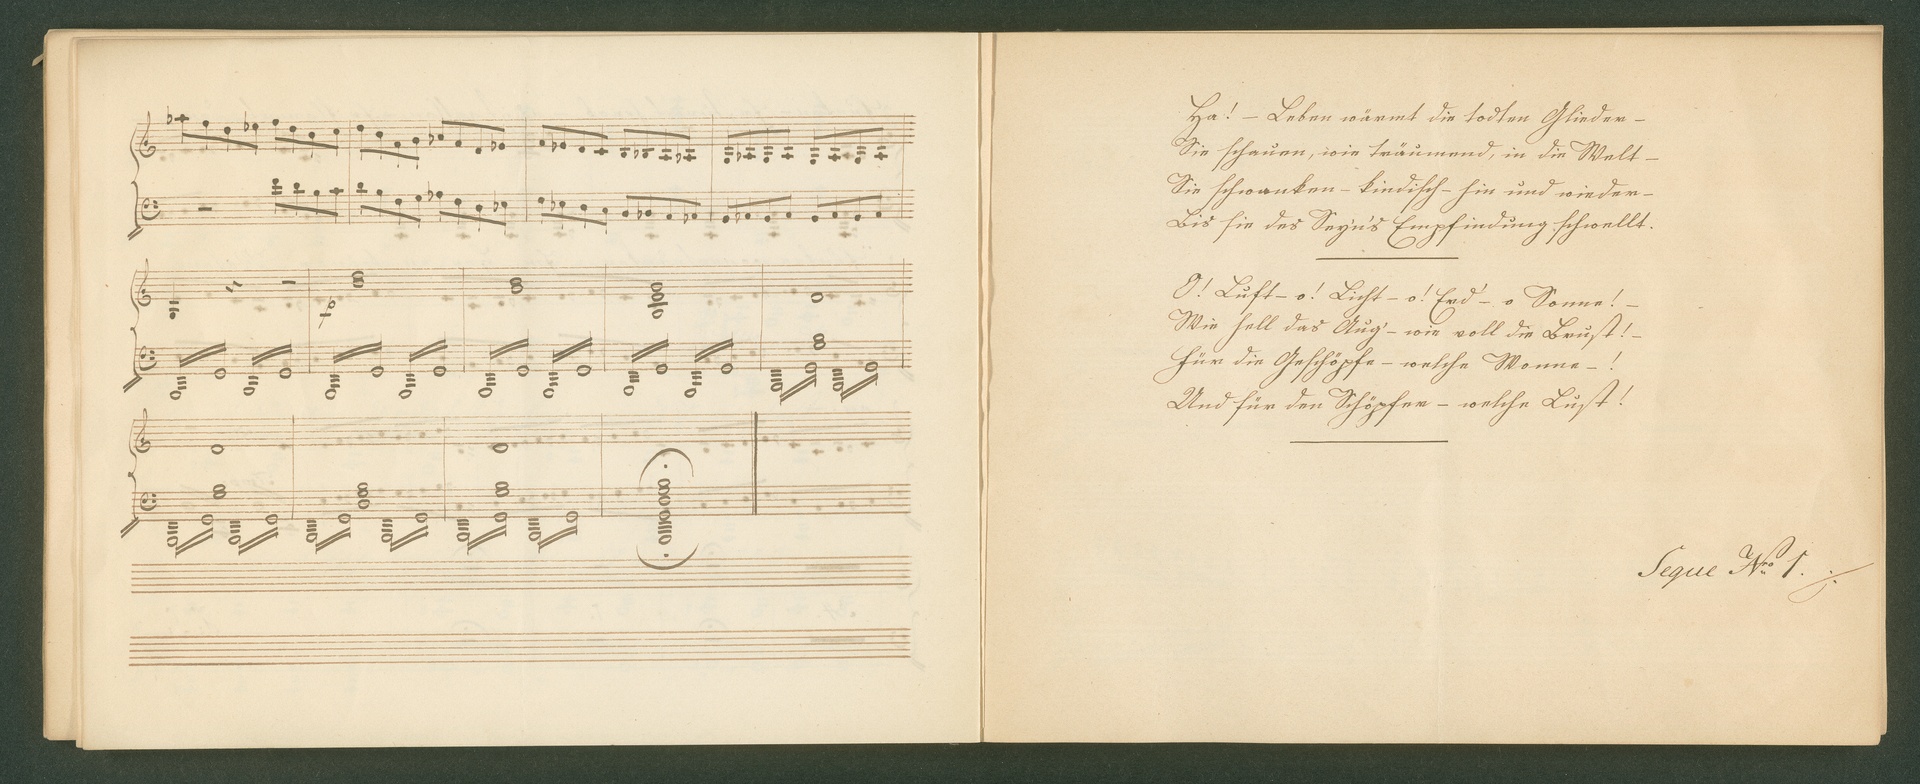 p
Ha! – Leben wärmt die todten Glieder –
Sie schauen, wie träumend, in die Welt –
Sie schwanken – kindisch – hin und wieder –
Bis sie des Seyn's Empfindung schwellt.
O! Luft – o! Licht – o! Erd' – o Sonne! –
Wie hell das Aug' – wie voll die Brust! –
Für die Geschöpfe – welche Wonne – !
Und für den Schöpfer – welche Lust!
Segue Nro 1.